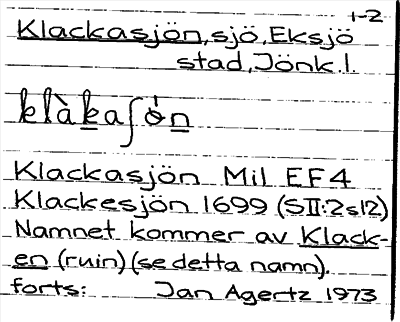 1-2
Klackasjön, sjö, Eksjö
stad, Jönk. l.
klàkaʃö́n
Klackasjön Mil EF4
Klackesjön 1699 (SII:2 s12)
Namnet kommer av Klack-
en (ruin) (se detta namn).
forts: Jan Agertz 1973